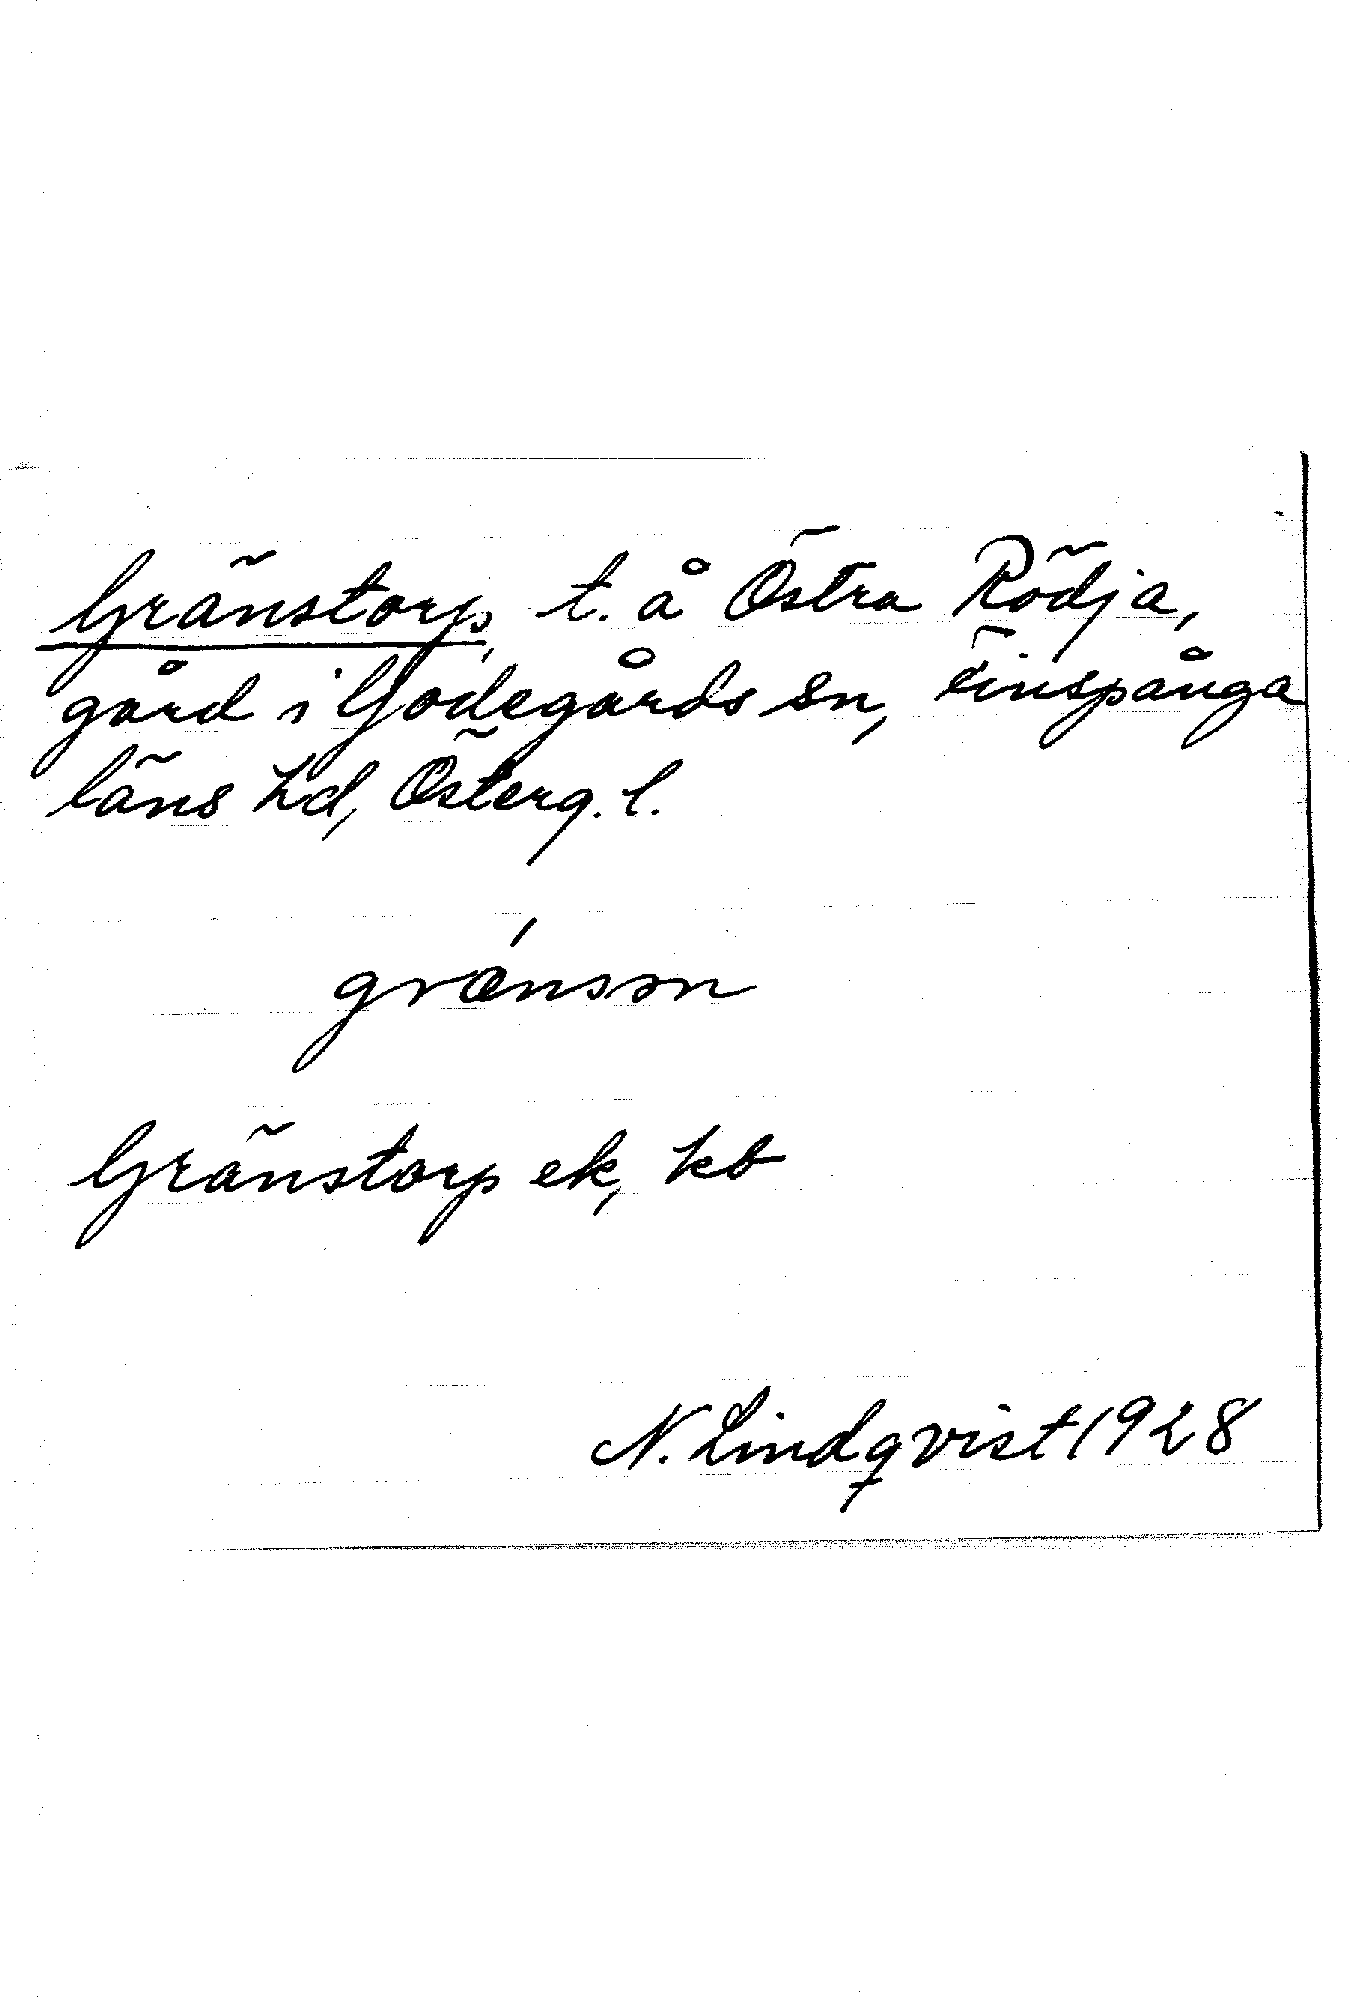 Gränstorp, t. å Östra Rödja,
gård i Godegårds sn, Finspånga
läns hd, Österg. l.
grǽnsɔn
Gränstorp ek, kb
N. Lindqvist 1928